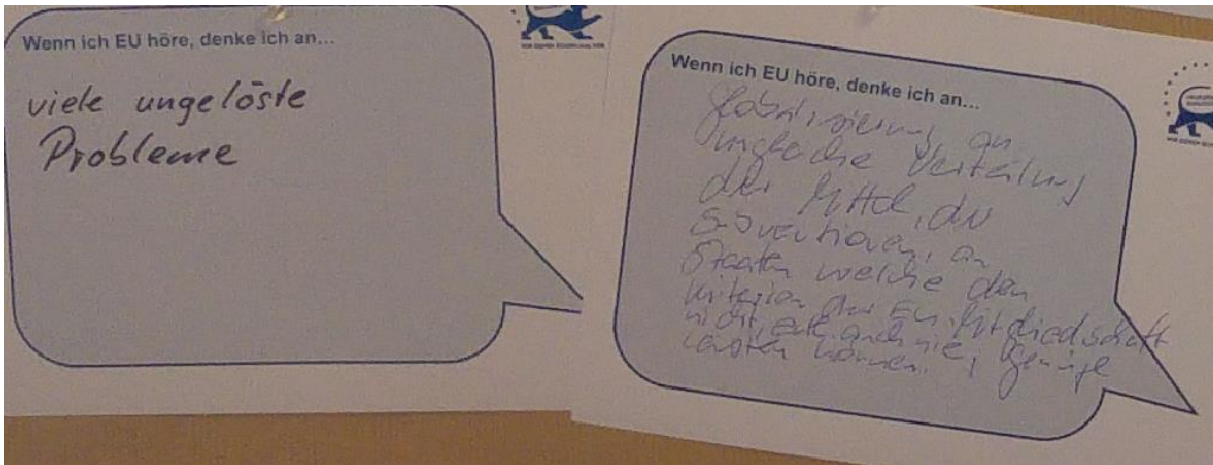 Wenn ich EU höre, denke ich an...
viele ungelöste
Probleme
Wenn ich EU höre, denke ich an...
Globalisierung, an
ungleiche Verteilung
der Mittel, der
Subventionen, an
Staaten welche den
Kriterien der EU-Mitgliedschaft
nicht, auch nie, Genüge
leisten können.